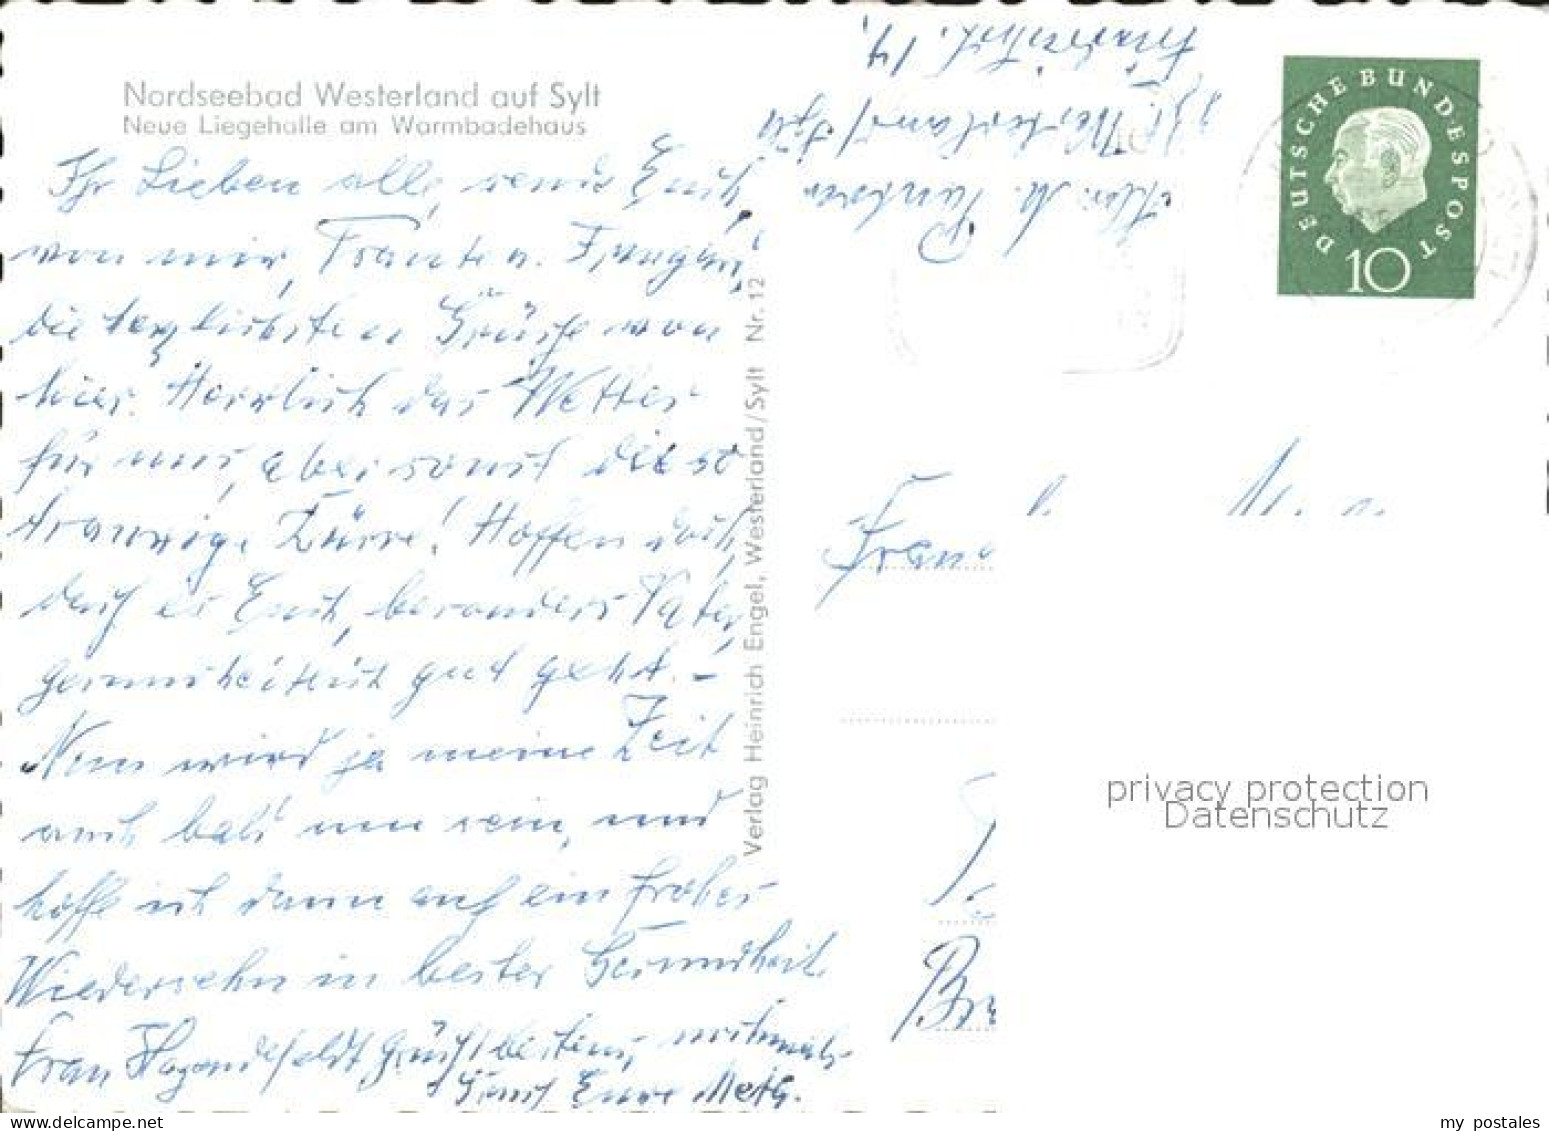 Nordseebad Westerland auf Sylt
Neue Liegehalle am Warmbadehaus
Ihr Lieben alle, seid Euch
von mir, Trante u.
die herzlichsten Grüße von
hier. Herrlich das Wetter
für uns, aber sonst die so
traurige Dürre! Hoffen doch,
daß es Euch, besonders Vater,
gesundheitlich gut geht. –
Nun wird ja meine Zeit
auch bald um sein, und
hoffe ich dann auf ein frohes
Wiedersehn in bester Gesundheit.
Frau Hagendefeldt grüßt bestens, nochmals
Gruß Eure Meta.
Verlag Heinrich Engel, Westerland/Sylt Nr. 12
Abs. M.
Westerland/Sylt
14,
DEUTSCHE BUNDESPOST
10
Frau
privacy protection
Datenschutz
my postales